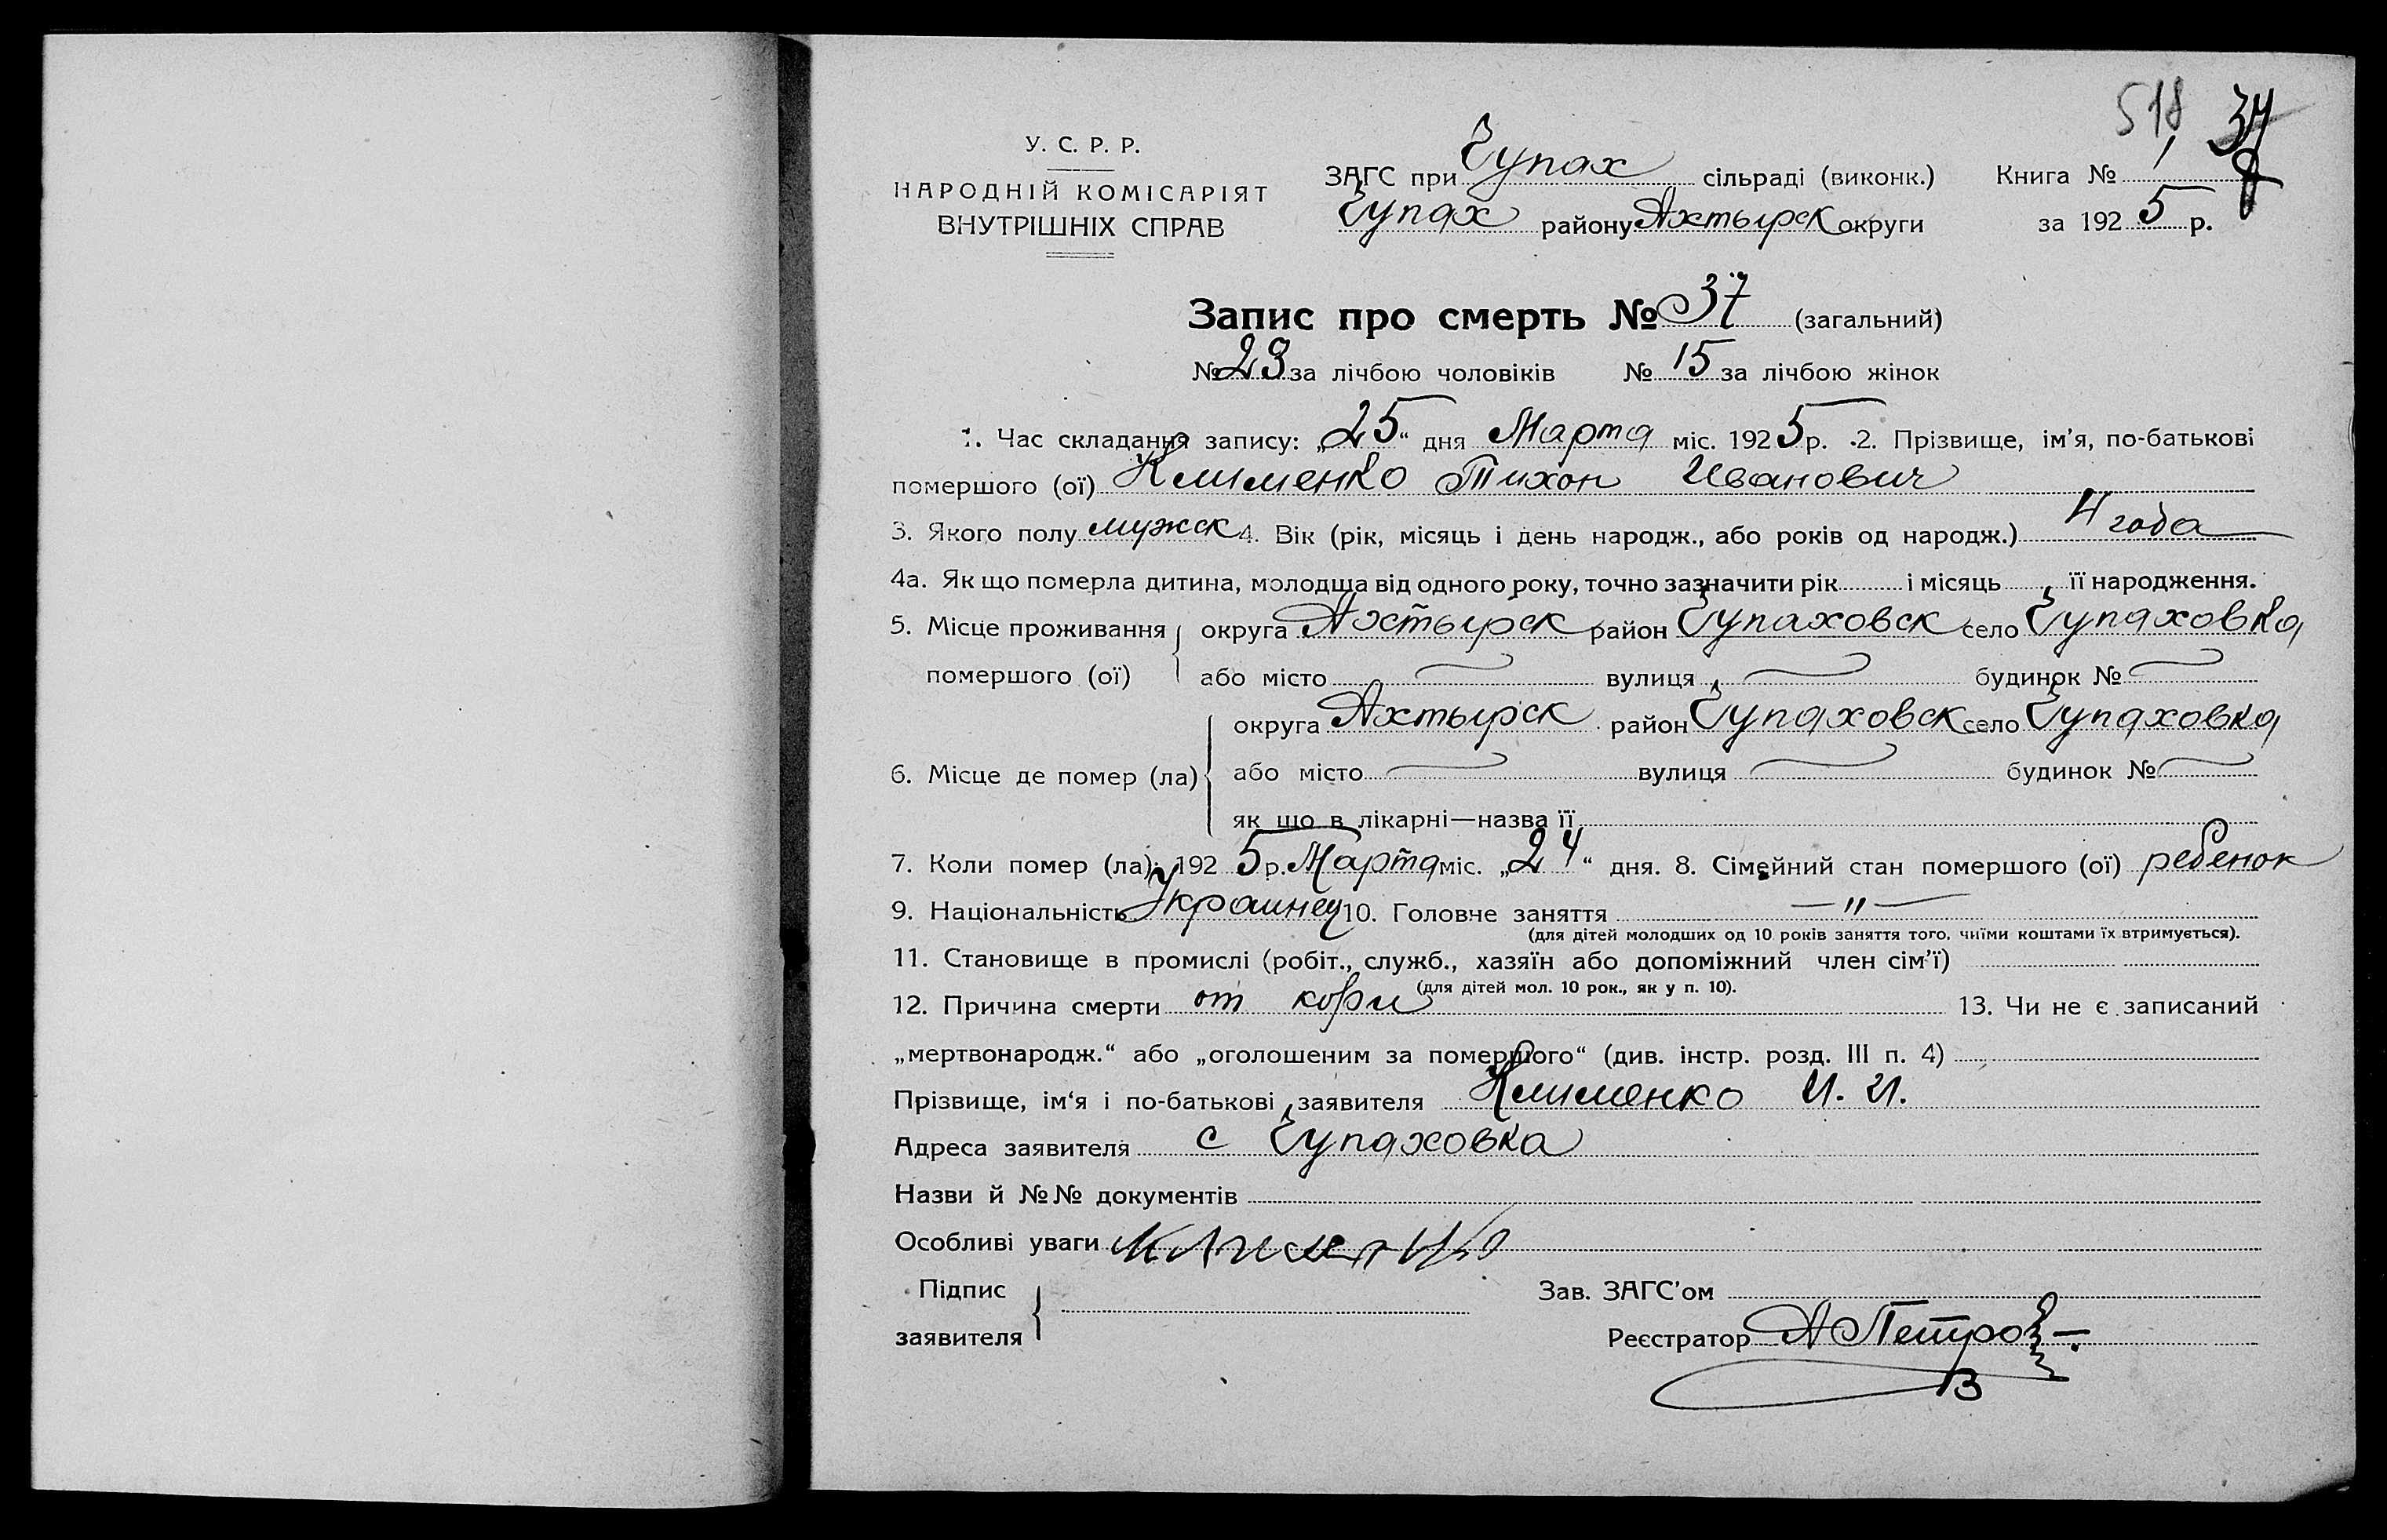 518 37
У. С. Р. Р.
НАРОДНІЙ КОМІСАРІЯТ
ВНУТРІШНІХ СПРАВ
ЗАГС при Чупах сільраді (виконк.)
Чупах району Ахтырск округи
Книга № 1
за 1925 р.
Запис про смерть № 37 (загальний)
№ 23 за лічбою чоловіків № 15 за лічбою жінок
1. Час складання запису: „25“ дня Марта міс. 1925 р. 2. Прізвище, ім’я, по-батькові
помершого (ої) Клименко Тихон Иванович
3. Якого полу мужск 4. Вік (рік, місяць і день народж., або років од народж.) 4 года
4а. Як що померла дитина, молодща від одного року, точно зазначити рік і місяць її народження.
5. Місце проживання помершого (ої) округа Ахтырск район Чупаховск село Чупаховка
або місто — вулиця — будинок № —
6. Місце де помер (ла) округа Ахтырск район Чупаховск село Чупаховка
або місто — вулиця — будинок № —
як що в лікарні—назва її
7. Коли помер (ла): 1925 р. Марта міс. „24“ дня. 8. Сімейний стан помершого (ої) ребенок
9. Національність Украинец 10. Головне заняття —"—
(для дітей молодших од 10 років заняття того, чиїми коштами їх втримується).
11. Становище в промислі (робіт., служб., хазяїн або допоміжний член сім’ї)
(для дітей мол. 10 рок., як у п. 10).
12. Причина смерти от кори 13. Чи не є записаний
„мертвонародж.“ або „оголошеним за помершого“ (див. інстр. розд. III п. 4)
Прізвище, ім‘я і по-батькові заявителя Клименко И. И.
Адреса заявителя с Чупаховка
Назви й №№ документів
Особливі уваги Клименко
Підпис
заявителя
Зав. ЗАГС’ом
Реєстратор А Петров